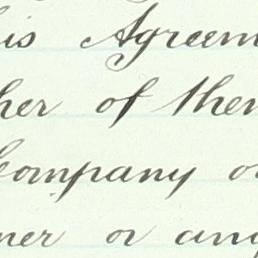 is Agreem
her of them
Company o
ner or any